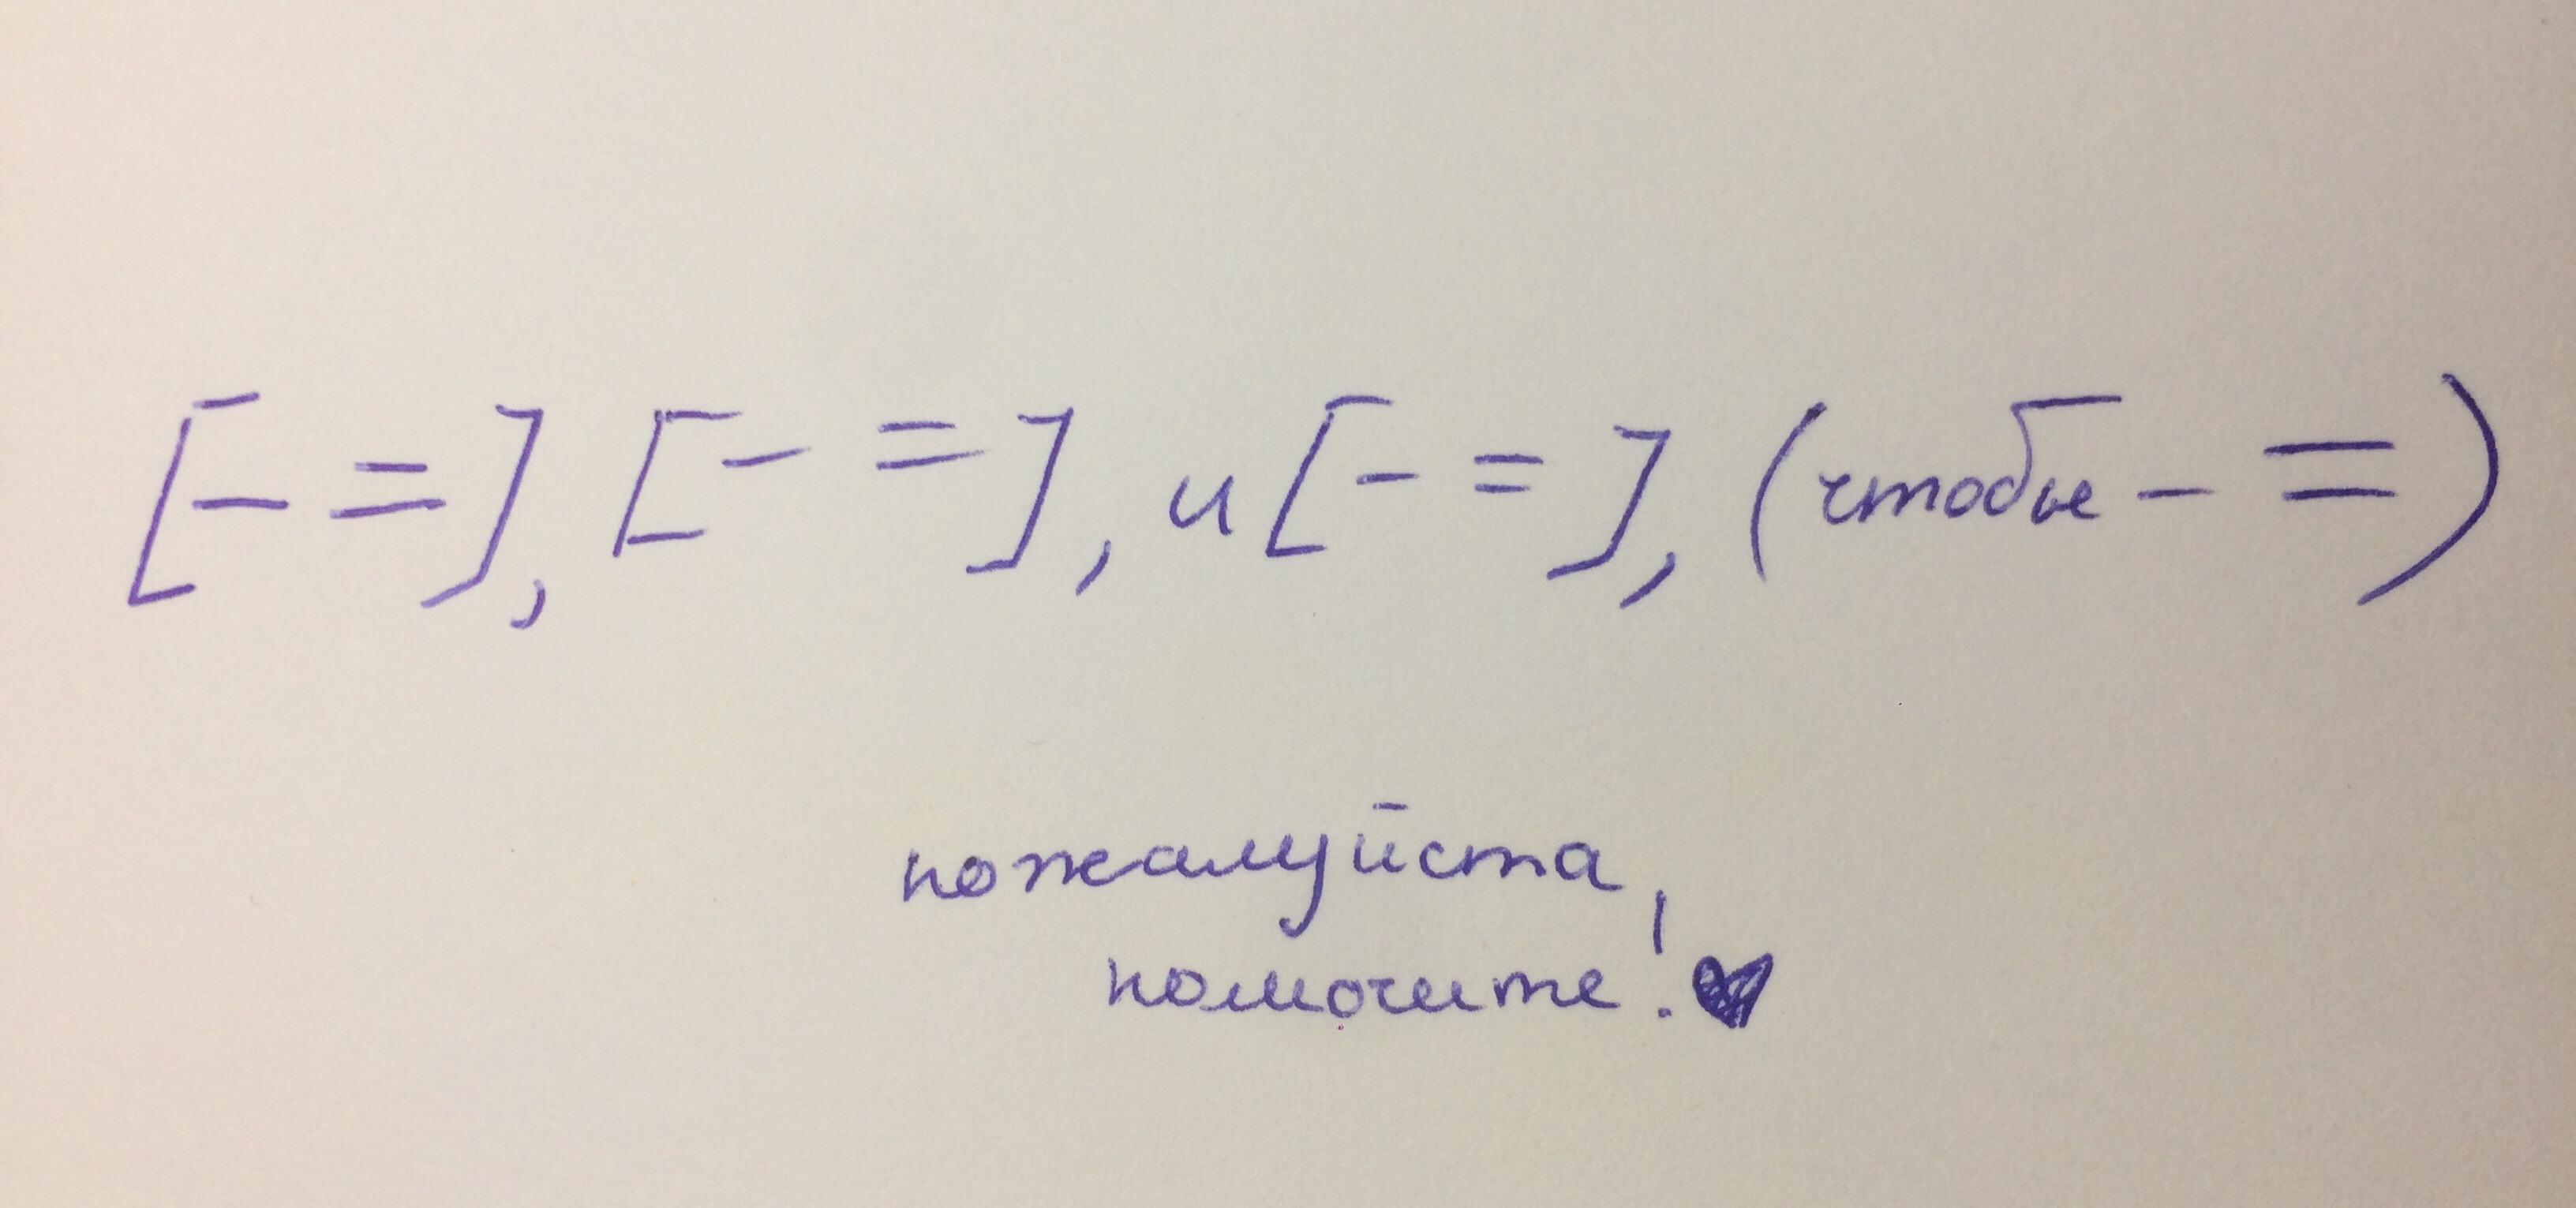 [- =], [- =], и [- =], (чтобы - =)
пожалуйста,
помогите! ♥